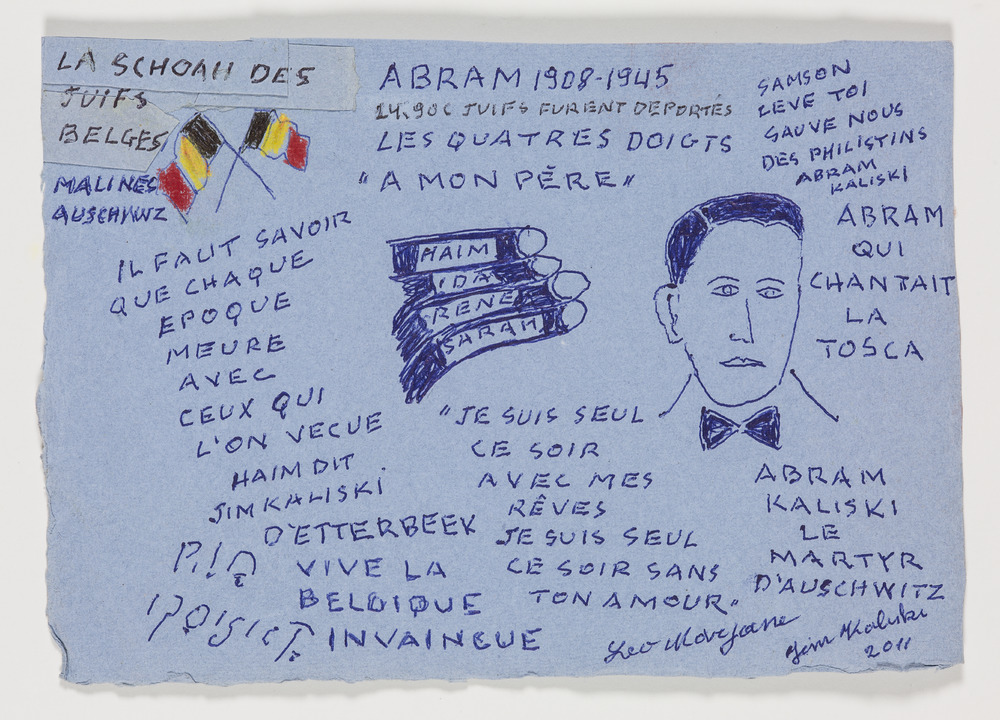 LA SCHOAH DES
JUIFS
BELGES
MALINES
AUSCHWITZ
ABRAM 1908-1945
24.90C JUIFS FURENT DEPORTÉS
LES QUATRES DOIGTS
"A MON PÈRE"
SAMSON
LEVE TOI
SAUVE NOUS
DES PHILISTINS
ABRAM
KALISKI
ABRAM
QUI
CHANTAIT
LA
TOSCA
IL FAUT SAVOIR
QUE CHAQUE
EPOQUE
MEURE
AVEC
CEUX QUI
L'ON VECUE
HAIM DIT
JIM KALISKI
D'ETTERBEEK
VIVE LA
BELGIQUE
INVAINCUE
HAIM
IDA
RENE
SARAH
"JE SUIS SEUL
CE SOIR
AVEC MES
RÊVES
JE SUIS SEUL
CE SOIR SANS
TON AMOUR."
ABRAM
KALISKI
LE
MARTYR
D'AUSCHWITZ
Leo Marjane
Jim Kaliski
2011